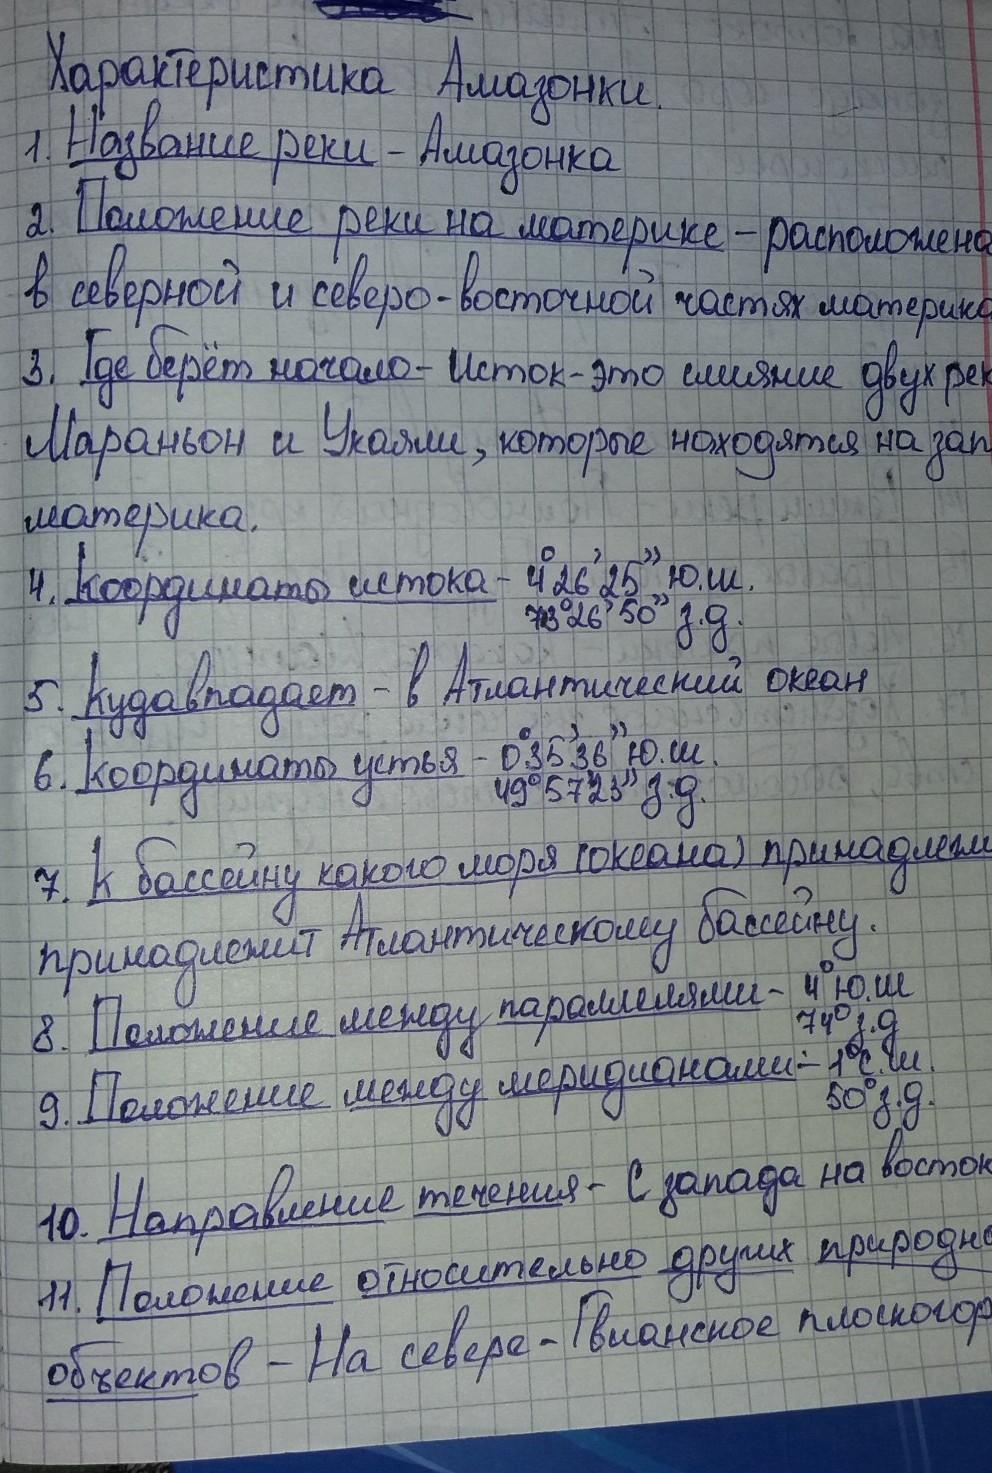 Характеристика Амазонки.
1. Название реки - Амазонка
2. Положение реки на материке - расположена
в северной и северо-восточной частях материка
3. Где берёт начало - Исток - это слияние двух рек
Мараньон и Укаяли, которые находятся на зап
материка.
4. Координаты истока - 4°26'25" Ю.ш.
73°26'50" з.д.
5. Куда впадает - в Атлантический океан
6. Координаты устья - 0°35'36" Ю.ш.
49°57'23" з.д.
7. К бассейну какого моря (океана) принадлежи
принадлежит Атлантическому бассейну.
8. Положение между параллелями - 4° Ю.ш
74° з.д
9. Положение между меридианами - 1° с.ш.
50° з.д.
10. Направление течения - С запада на восток
11. Положение относительно других природно
объектов - На севере - Гвианское плоскогор